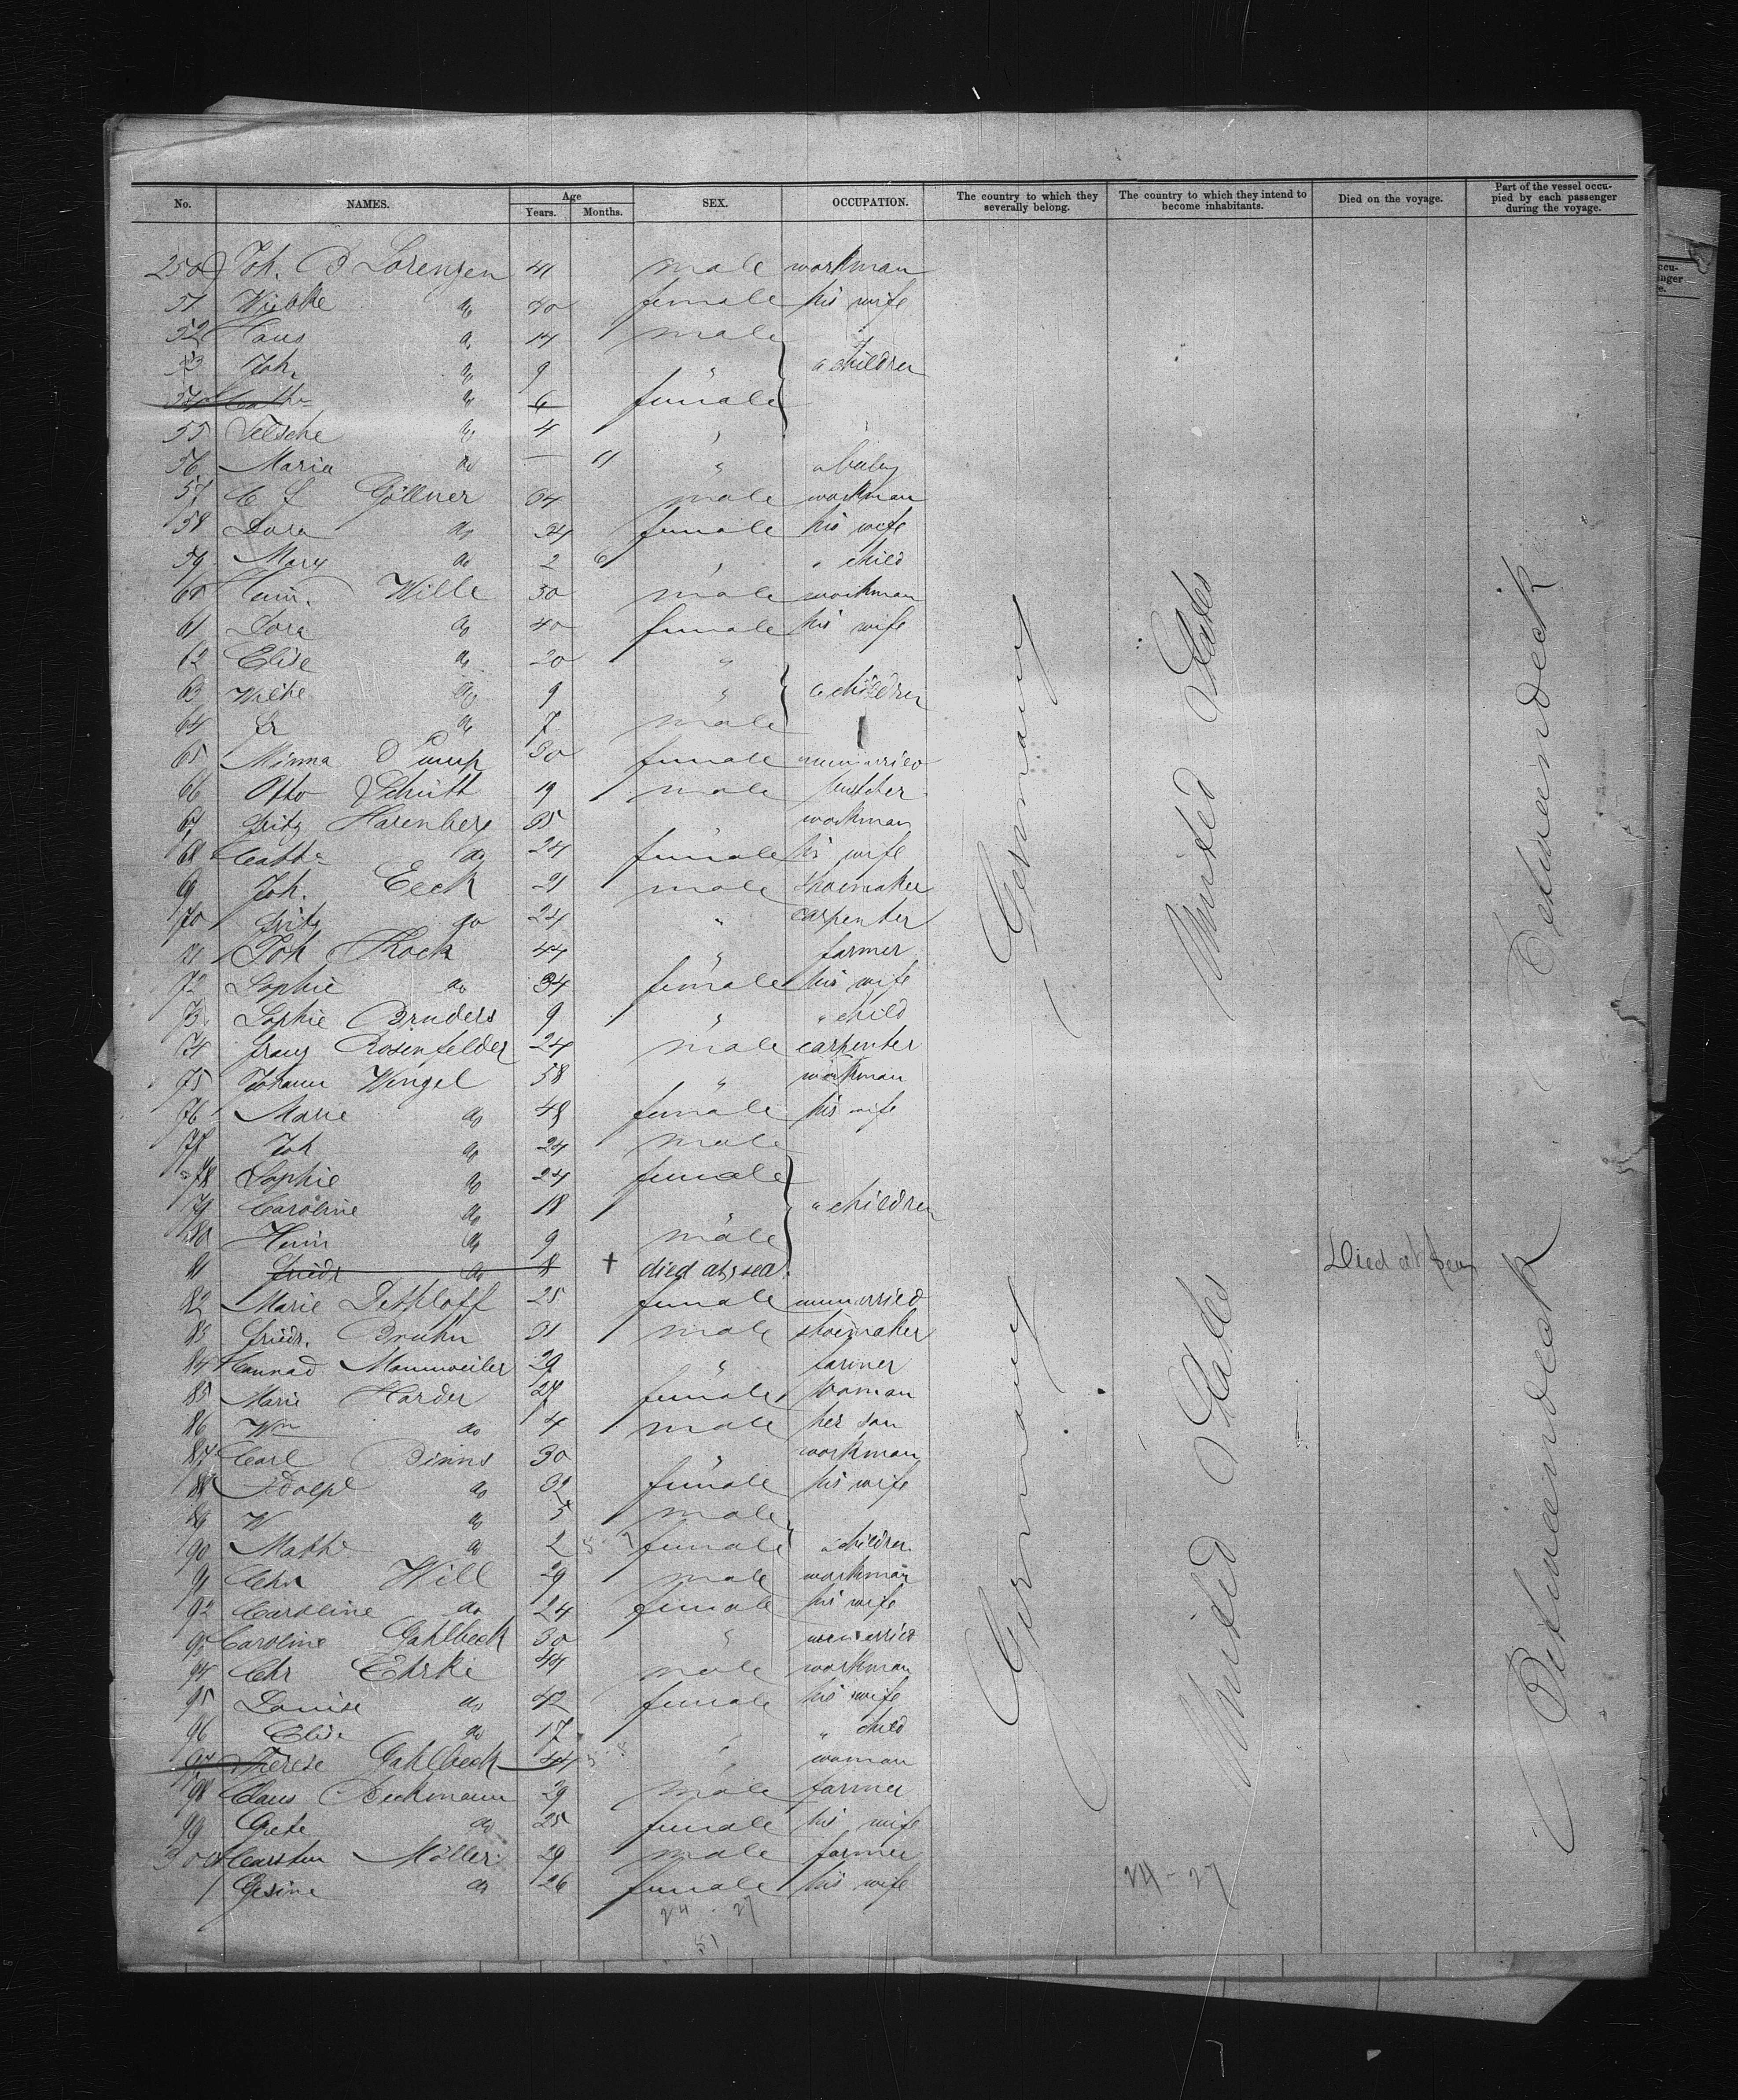 No. NAMES. Age Years. Months. SEX. OCCUPATION. The country to which they severally belong. The country to which they intend to become inhabitants. Died on the voyage. Part of the vessel occupied by each passenger during the voyage.
250 Joh. B Lorenzen 41 male workman
51 Wiebke do 40 female his wife
52 Hans do 14 male
53 Joh. do 9 " " children
54 Cathe do 6 female
55 Telsche do 4 "
56 Maria do — 11 " " baby
57 C L Göllner 34 male workman
58 Dora do 34 female his wife
59 Mary do 2 6 " " child
60 Heinr. Wille 50 male workman
61 Dora do 40 female his wife
62 Elise do 20 "
63 Wilhe do 9 " " children
64 do 7 male
65 Minna 30 female unmarried
66 Otto Schütt 19 male butcher
67 Fritz Harenberg 35 " workman
68 Cathe do 24 female his wife
69 Joh. Eeck 21 male shoemaker
70 Fritz do 24 " carpenter
71 Joh Rock 44 " farmer
72 Sophie do 34 female his wife
73 Sophie Bruders 9 " " child
74 Franz Rosenfelder 24 male carpenter
75 Johann Wengel 58 " workman
76 Marie do 48 female his wife
77 Joh do 24 male
78 Sophie do 24 female
79 Caroline do 18 " " children
80 Heinr do 9 male
81 Friedr do 8 † died at sea. Died at Sea
82 Marie Dethloff 25 female unmarried
83 Friedr. Bruhn 31 male shoemaker
84 Connad Mannweiler 29 " farmer
85 Marie Harder 27 female woman
86 Wm do 4 male her son
87 Carl Binns 30 " workman
88 Adolpe do 32 female his wife
89 W do 5 male
90 Mathe do 2 female " children
91 Chr Will 29 male workman
92 Caroline do 24 female his wife
93 Caroline Gahlbeck 30 " unmarried
94 Chr Ehrke 44 male workman
95 Louise do 42 female his wife
96 Elise do 17 " " child
97 Therese Gahlbeck 44 " woman
98 Claus Beckmann 29 male farmer
99 Grete do 25 female his wife
300 Carsten Möller 29 male farmer
1 Gesine do 26 female his wife
Germany United States Betweendeck
Germany United States Betweendeck
24 - 27
24 - 27
51